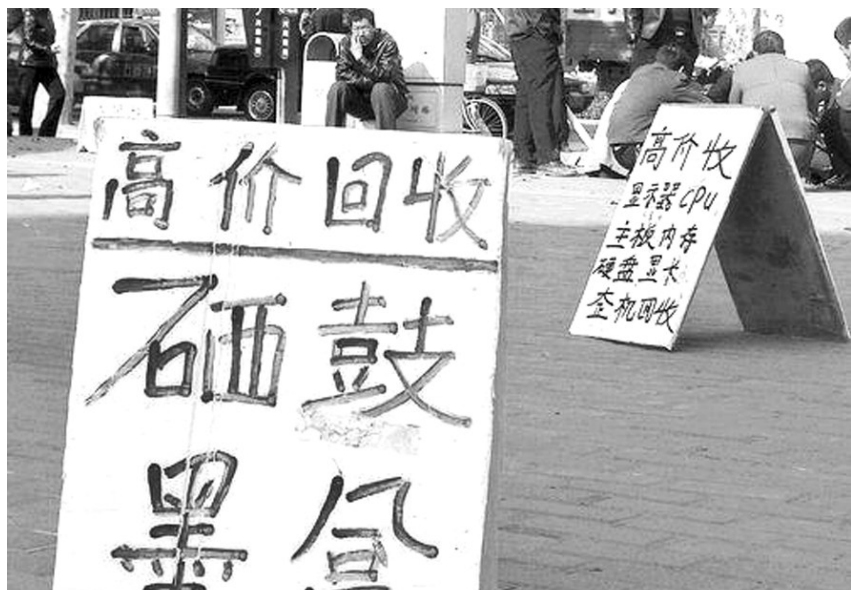 高价回收
硒鼓
墨盒
高价收
显示器CPU
主板内存
硬盘显卡
整机回收